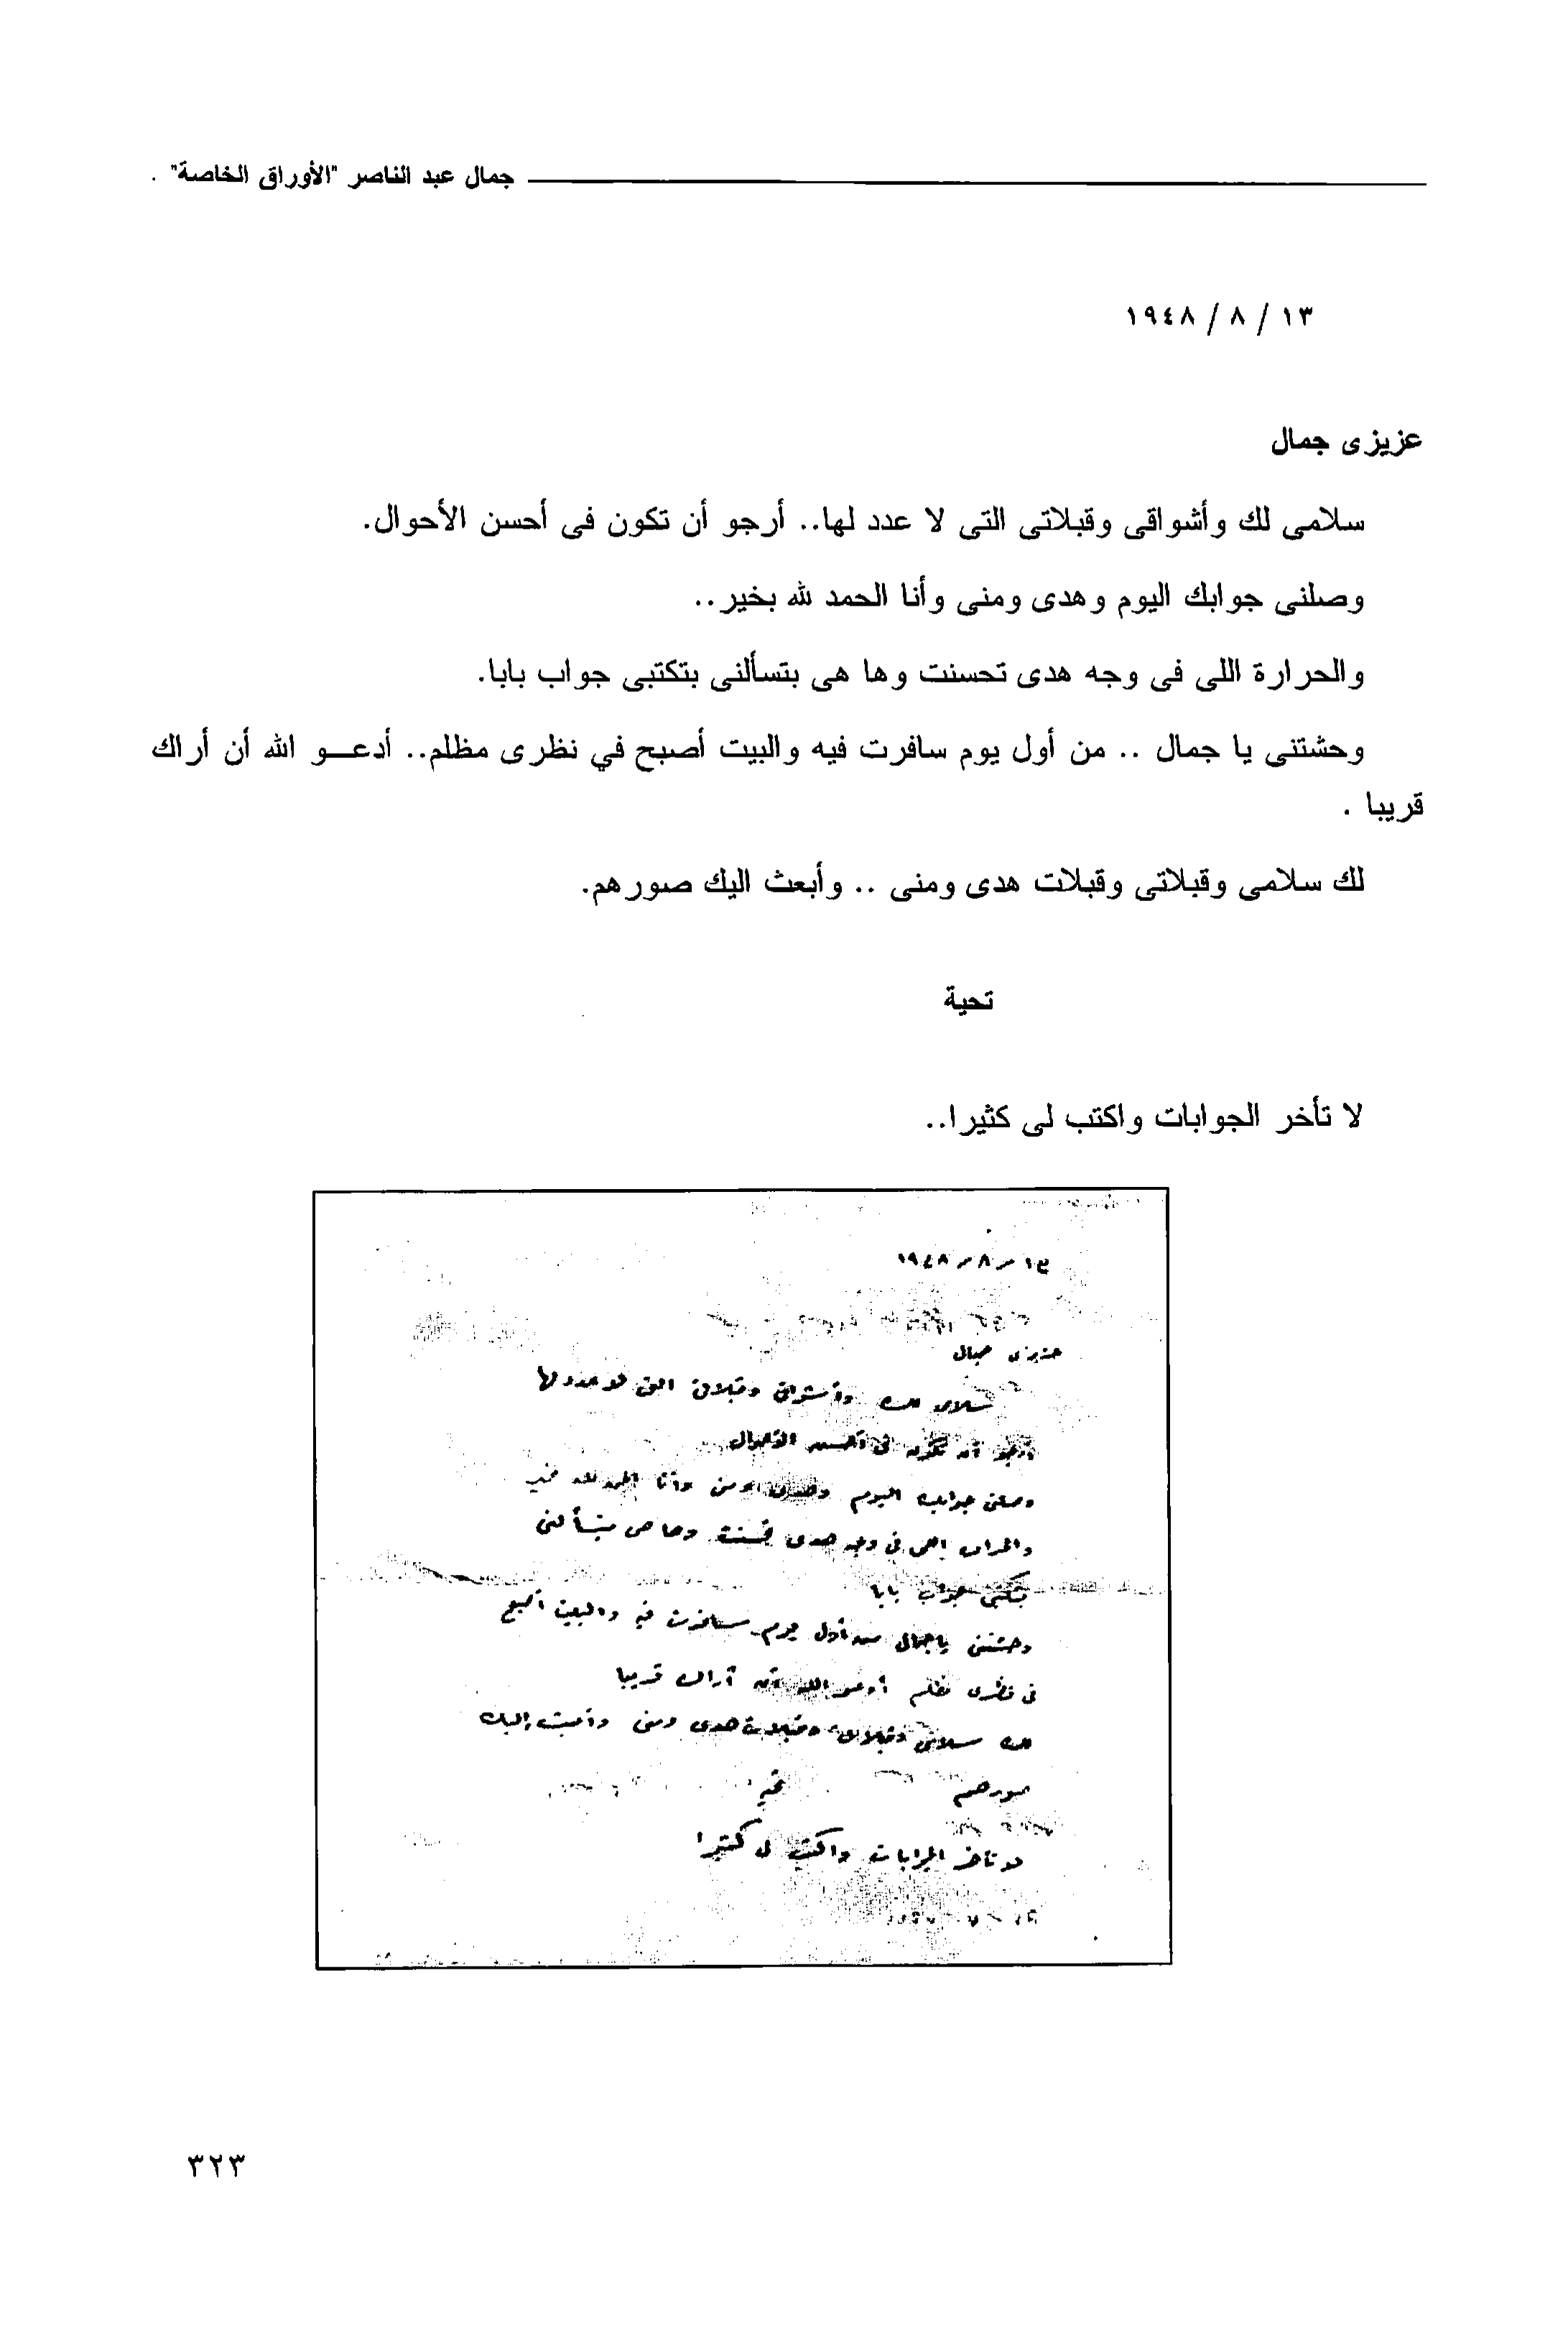 جمال عبد الناصر "الأوراق الخاصة" .
١٣ / ٨ / ١٩٤٨
عزيزى جمال
سلامى لك وأشواقى وقبلاتى التى لا عدد لها.. أرجو أن تكون فى أحسن الأحوال.
وصلنى جوابك اليوم وهدى ومنى وأنا الحمد لله بخير..
والحرارة اللى فى وجه هدى تحسنت وها هى بتسألنى بتكتبى جواب بابا.
وحشتنى يا جمال .. من أول يوم سافرت فيه والبيت أصبح في نظرى مظلم.. أدعـــو الله أن أراك
قريبا .
لك سلامى وقبلاتى وقبلات هدى ومنى .. وأبعث اليك صورهم.
تحية
لا تأخر الجوابات واكتب لى كثيرا..
١٣ - ٨ - ١٩٤٨
عزيزى جمال
سلامى لك وأشواقى وقبلاتى التى لا عدد لها
أرجو أن تكون فى أحسن الأحوال
وصلنى جوابك اليوم وهدى ومنى وأنا الحمد لله بخير
والحرارة اللى فى وجه هدى تحسنت وها هى بتسألنى
بتكتبى جواب بابا
وحشتنى يا جمال من أول يوم سافرت فيه والبيت أصبح
فى نظرى مظلم أدعو الله أن أراك قريبا
لك سلامى وقبلاتى وقبلات هدى ومنى وأبعث إليك
صورهم تحية
لا تأخر الجوابات واكتب لى كثيرا
٣٢٣